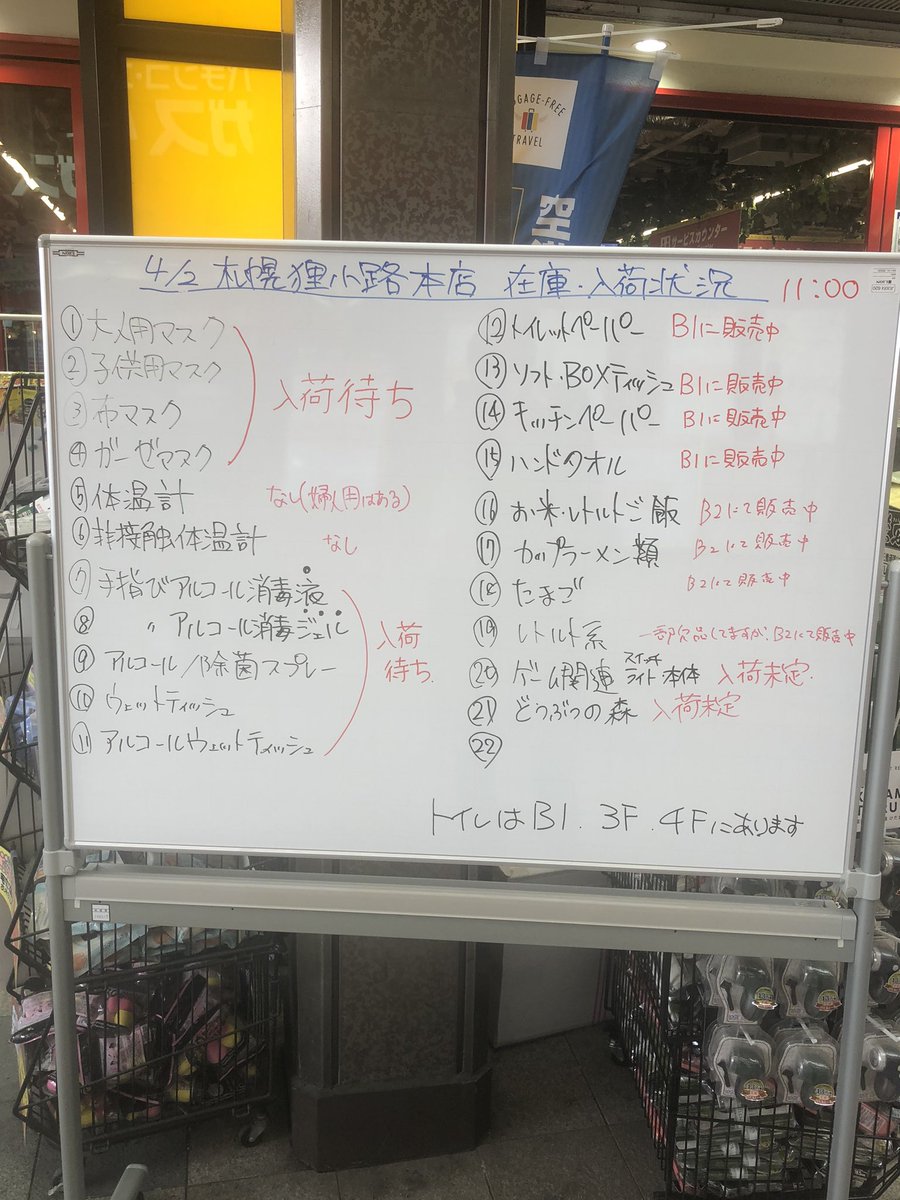 パチンコ
ガス
GGAGE-FREE
TRAVEL
空港
サービスカウンター
4/2 札幌狸小路本店 在庫・入荷状況 11:00
①大人用マスク
②子供用マスク
③布マスク
④ガーゼマスク
入荷待ち
⑤体温計 なし(婦人用はある)
⑥非接触体温計 なし
⑦手指びアルコール消毒液
⑧ 〃 アルコール消毒ジェル
⑨アルコール/除菌スプレー
⑩ウェットティッシュ
⑪アルコールウェットティッシュ
入荷
待ち
⑫トイレットペーパー B1に販売中
⑬ソフト・BOXティッシュ B1に販売中
⑭キッチンペーパー B1に販売中
⑮ハンドタオル B1に販売中
⑯お米・レトルトご飯 B2にて販売中
⑰カップラーメン類 B2にて販売中
⑱たまご B2にて販売中
⑲レトルト系 一部欠品してますが、B2にて販売中
⑳ゲーム関連 スイッチ ライト本体 入荷未定
㉑どうぶつの森 入荷未定
㉒
トイレはB1.3F.4Fにあります